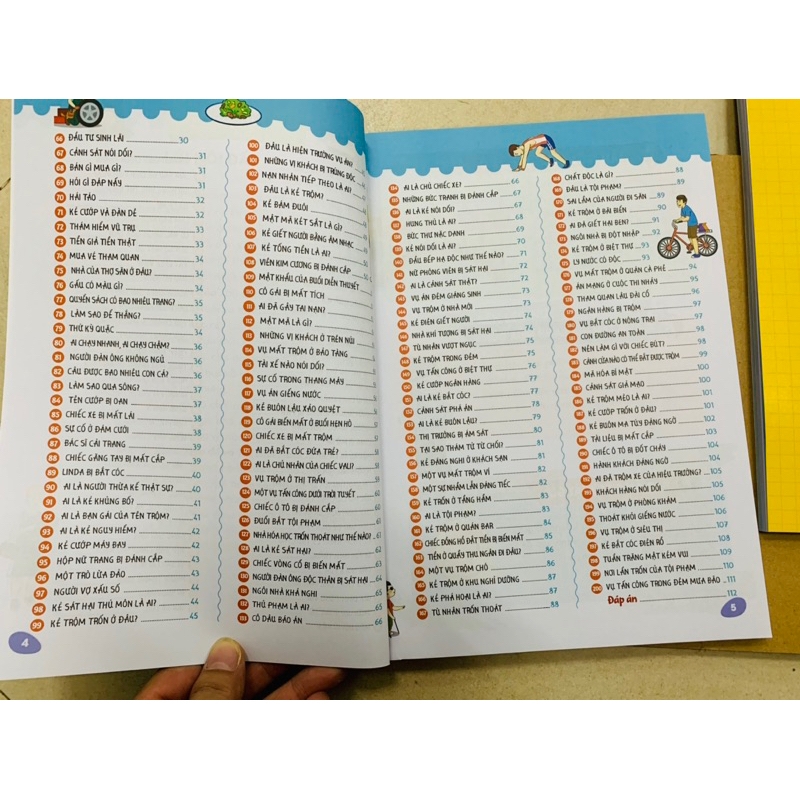 66 ĐẦU TƯ SINH LÃI 30
67 CẢNH SÁT NÓI DỐI? 31
68 BÁN GÌ MUA GÌ? 31
69 HỎI GÌ ĐÁP NẤY 31
70 HÁI TÁO 32
71 KẺ CƯỚP VÀ DÂN ĐÊ 32
72 THÁM HIỂM VŨ TRỤ 33
73 TIỀN GIẢ TIỀN THẬT 33
74 MUA VÉ THAM QUAN 34
75 NHÀ CỦA THỢ SĂN Ở ĐÂU? 34
76 GẤU CÓ MÀU GÌ? 34
77 QUYỂN SÁCH CÓ BAO NHIÊU TRANG? 35
78 LÀM SAO ĐỂ THẮNG? 35
79 THƯ KÝ QUẶC 35
80 AI CHẠY NHANH, AI CHẠY CHẬM? 36
81 NGƯỜI ĐÀN ÔNG KHÔNG NGỦ 36
82 CÂU ĐƯỢC BAO NHIÊU CON CÁ? 36
83 LÀM SAO QUA SÔNG? 37
84 TÊN CƯỚP BỊ OAN 37
85 CHIẾC XE BỊ MẤT LÁI 38
86 SỰ CỐ Ở ĐÁM CƯỚI 38
87 BÁC SĨ CÁI TRANG 39
88 CHIẾC GĂNG TAY BỊ MẤT CẮP 39
89 LINDA BỊ BẮT CÓC 40
90 AI LÀ NGƯỜI THỪA KẾ THẬT SỰ? 40
91 AI LÀ KẺ KHỦNG BỐ? 41
92 AI LÀ BẠN GÁI CỦA TÊN TRỘM? 41
93 AI LÀ KẺ NGUY HIỂM? 42
94 KẺ CƯỚP MÁY BAY 42
95 HỘP NỮ TRANG BỊ ĐÁNH CẮP 43
96 MỘT TRÒ LỪA ĐẢO 43
97 NGƯỜI VỢ XẤU SỐ 44
98 KẺ SÁT HẠI THỦ MÔN LÀ AI? 44
99 KẺ TRỘM TRỐN Ở ĐÂU? 45
4
100 ĐÂU LÀ HIỆN TRƯỜNG VỤ ÁN?
101 NHỮNG VỊ KHÁCH BỊ TRÚNG ĐỘC
102 NẠN NHÂN TIẾP THEO LÀ AI?
103 ĐÂU LÀ KẺ TRỘM?
104 KẺ BÁM ĐUÔI
105 MẬT MÃ KÉT SẮT LÀ GÌ?
106 KẺ GIẾT NGƯỜI BẰNG ÂM NHẠC
107 KẺ TỐNG TIỀN LÀ AI?
108 VIÊN KIM CƯƠNG BỊ ĐÁNH CẮP
109 MẬT KHẨU CỦA BUỔI DIỄN THUYẾT
110 CÔ GÁI BỊ MẤT TÍCH
111 AI ĐÃ GÂY TAI NẠN?
112 MẬT MÃ LÀ GÌ?
113 NHỮNG VỊ KHÁCH Ở TRÊN NÚI
114 VỤ MẤT TRỘM Ở BẢO TÀNG
115 TÀI XẾ NÀO NÓI DỐI?
116 SỰ CỐ TRONG THANG MÁY
117 VỤ ÁN GIẾNG NƯỚC
118 KẺ BUÔN LẬU XẢO QUYỆT
119 CÔ GÁI BIẾN MẤT Ở BUỔI HẸN HÒ
120 CHIẾC XE BỊ MẤT TRỘM
121 AI ĐÃ BẮT CÓC ĐỨA TRẺ?
122 AI LÀ CHỦ NHÂN CỦA CHIẾC VALI?
123 VỤ TRỘM Ở THỊ TRẤN
124 MỘT VỤ TẤN CÔNG DƯỚI TRỜI TUYẾT
125 CHIẾC Ô TÔ BỊ ĐÁNH CẮP
126 ĐUỔI BẮT TỘI PHẠM
127 NHÀ HÓA HỌC TRỐN THOÁT NHƯ THẾ NÀO? 62
128 AI LÀ KẺ SÁT HẠI? 62
129 CHIẾC VÒNG CỔ BỊ BIẾN MẤT 63
130 NGƯỜI ĐÀN ÔNG ĐỘC THÂN BỊ SÁT HẠI 64
131 NGÔI NHÀ KHẢ NGHI 65
132 THỦ PHẠM LÀ AI? 65
133 CÔ DÂU BÁO ÁN 66
134 AI LÀ CHỦ CHIẾC XE? 66
135 NHỮNG BỨC TRANH BỊ ĐÁNH CẮP 67
136 AI LÀ KẺ NÓI DỐI? 67
137 HUNG THỦ LÀ AI? 68
138 BỨC THƯ NẶC DANH 69
139 KẺ NÓI DỐI LÀ AI? 70
140 ĐẦU BẾP HẠ ĐỘC NHƯ THẾ NÀO? 71
141 NỮ PHÓNG VIÊN BỊ SÁT HẠI 72
142 AI LÀ CẢNH SÁT THẬT? 72
143 VỤ ÁN ĐÊM GIÁNG SINH 73
144 VỤ TRỘM Ở NHÀ MỚI 73
145 KẺ ĐIÊN GIẾT NGƯỜI 74
146 NHÀ KHÍ TƯỢNG BỊ SÁT HẠI 74
147 TÙ NHÂN VƯỢT NGỤC 75
148 KẺ TRỘM TRONG ĐÊM 75
149 VỤ TẤN CÔNG Ở BIỆT THỰ 76
150 KẺ CƯỚP NGÂN HÀNG 77
151 AI LÀ KẺ BẮT CÓC? 77
152 CẢNH SÁT PHÁ ÁN 78
153 AI LÀ KẺ BUÔN LẬU? 79
154 THỊ TRƯỞNG BỊ ÁM SÁT 80
155 TẠI SAO THÁM TỬ TỪ CHỐI? 81
156 KẺ ĐÁNG NGHI Ở KHÁCH SẠN 81
157 MỘT VỤ MẤT TRỘM VÍ 82
158 MỘT SỰ NHẦM LẪN ĐÁNG TIẾC 82
159 KẺ TRỐN Ở TẦNG HẦM 83
160 AI LÀ TỘI PHẠM? 83
161 KẺ TRỘM Ở QUÁN BAR 84
162 CHIẾC ĐỒNG HỒ ĐẮT TIỀN BỊ BIẾN MẤT 85
163 TIỀN Ở QUẦY THU NGÂN ĐI ĐÂU? 86
164 MỘT VỤ TRỘM CHÓ 86
165 KẺ TRỘM Ở KHU NGHỈ DƯỠNG 87
166 KẺ PHÁ HOẠI LÀ AI? 87
167 TÙ NHÂN TRỐN THOÁT 88
168 CHẤT ĐỘC LÀ GÌ? 88
169 ĐÂU LÀ TỘI PHẠM? 89
170 SAI LẦM CỦA NGƯỜI ĐI SĂN 89
171 KẺ TRỘM Ở BÃI BIỂN 90
172 AI ĐÃ GIẾT HẠI BEN? 91
173 NGÔI NHÀ BỊ ĐỘT NHẬP 92
174 KẺ TRỘM Ở BIỆT THỰ 93
175 LY NƯỚC CÓ ĐỘC 93
176 VỤ MẤT TRỘM Ở QUÁN CÀ PHÊ 94
177 ÁN MẠNG Ở CUỘC THI NHẢY 95
178 THAM QUAN LÂU ĐÀI CỔ 96
179 NGÂN HÀNG BỊ TRỘM 97
180 VỤ BẮT CÓC Ở NÔNG TRẠI 97
181 CON ĐƯỜNG AN TOÀN 98
182 NÊN LÀM GÌ VỚI CHIẾC BÚT? 98
183 CÁNH CỬA NÀO CÓ THỂ BẮT ĐƯỢC TRỘM 99
184 MÃ HÓA BÍ MẬT 100
185 CẢNH SÁT GIẢ MẠO 100
186 KẺ TRỘM MÈO LÀ AI? 101
187 KẺ CƯỚP TRỐN Ở ĐÂU? 101
188 KẺ BUÔN MA TÚY ĐÁNG NGỜ 102
189 TÀI LIỆU BỊ MẤT CẮP 103
190 CHIẾC Ô TÔ BỊ ĐỐT CHÁY 104
191 HÀNH KHÁCH ĐÁNG NGỜ 104
192 AI ĐÃ TRỘM XE CỦA HIỆU TRƯỞNG? 105
193 KHÁCH HÀNG NÓI DỐI 105
194 VỤ TRỘM Ở PHÒNG KHÁM 106
195 THOÁT KHỎI GIẾNG NƯỚC 106
196 VỤ TRỘM Ở SIÊU THỊ 107
197 KẺ BẮT CÓC ĐIÊN RỒ 108
198 TUẦN TRĂNG MẬT KÉM VUI 109
199 NƠI LẨN TRỐN CỦA TỘI PHẠM 110
200 VỤ TẤN CÔNG TRONG ĐÊM MƯA BÃO 111
Đáp án 112
5